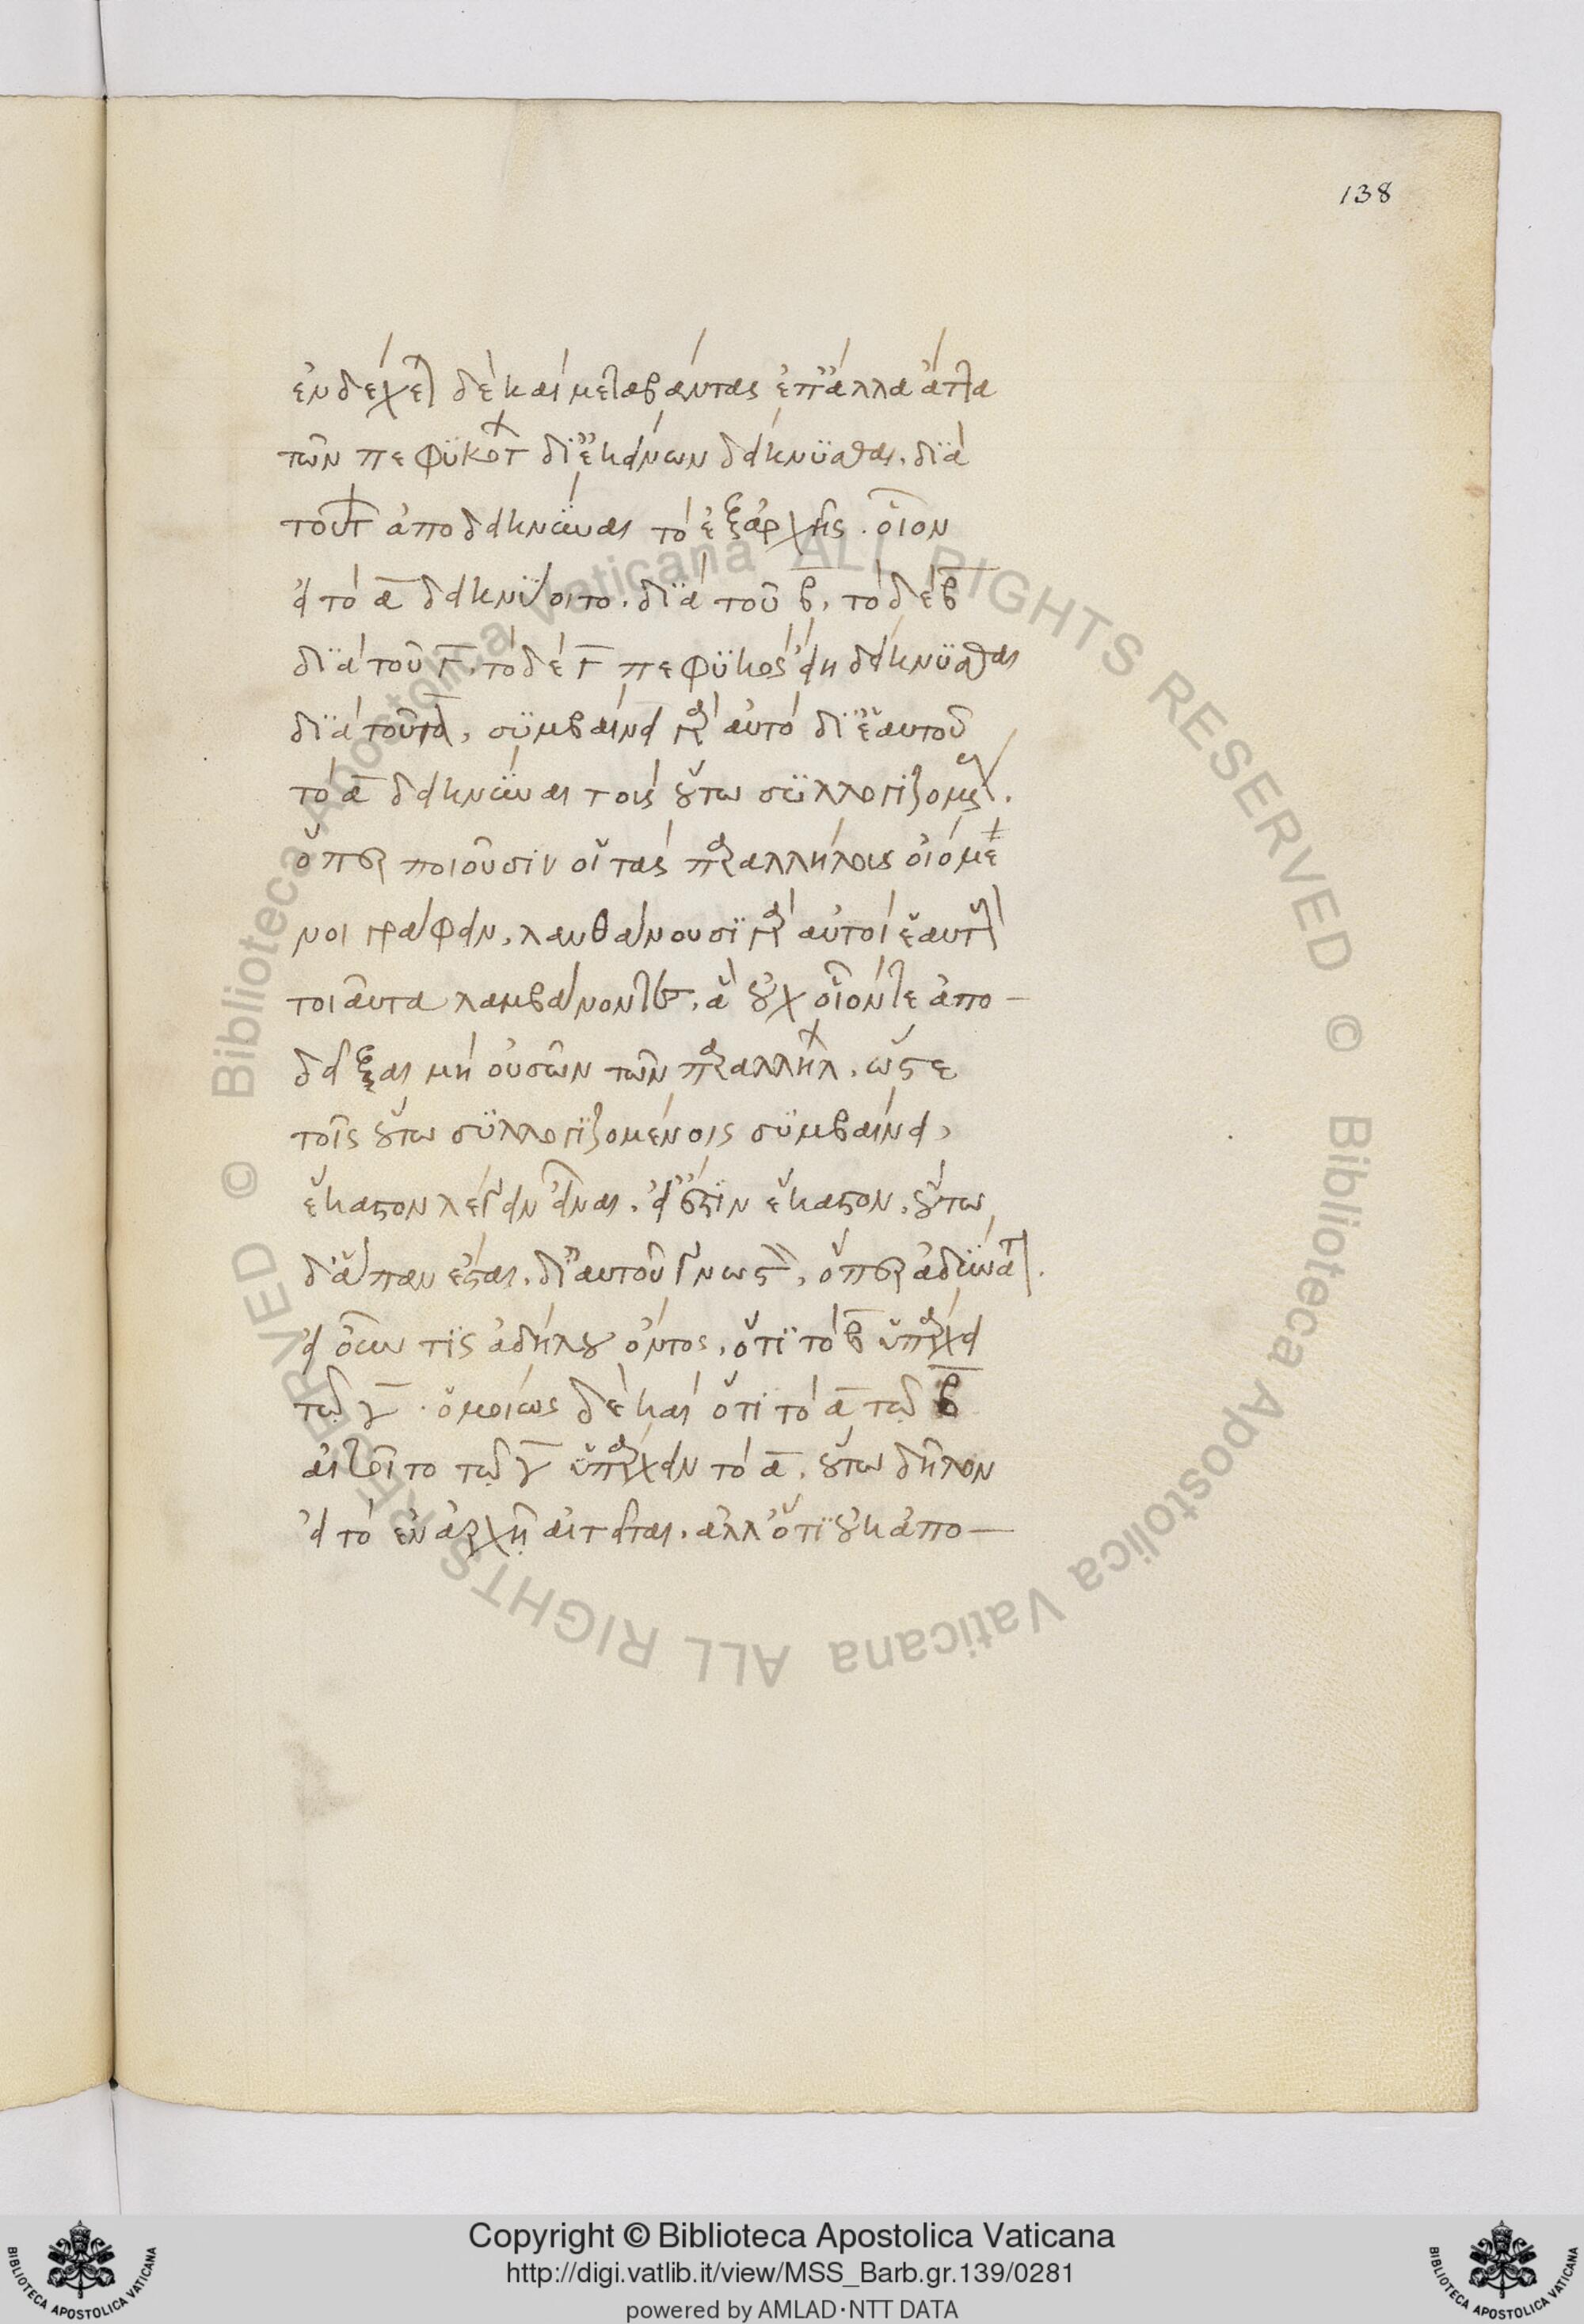 138
ἐνδέχεται δὲ καὶ μεταβάντας ἐπ' ἄλλα ἄττα
τῶν πεφυκότων δι' ἐκείνων δείκνυσθαι. διὰ
τούτων ἀποδεικνύναι τὸ ἐξ ἀρχῆς. οἷον
εἰ τὸ α δεικνύοιτο. διὰ τοῦ β, τὸ δὲ β
διὰ τοῦ γ. τὸ δὲ γ πεφυκὸς εἴη δείκνυσθαι
διὰ τοῦ α, συμβαίνει γὰρ αὐτὸ δι' ἑαυτοῦ
τὸ α δεικνύναι τοὺς οὕτω συλλογιζομένους.
ὅπερ ποιοῦσιν οἱ τὰς παραλλήλους οἰόμε
νοι γράφειν. λανθάνουσι γὰρ αὐτοὶ ἑαυτοὺς
τοιαῦτα λαμβάνοντες. ἃ οὐχ οἷόν τε ἀπο-
δεῖξαι μὴ οὐσῶν τῶν παραλλήλων. ὥστε
τοῖς οὕτω συλλογιζομένοις συμβαίνει,
ἕκαστον λέγειν εἶναι. εἰ ἔστιν ἕκαστον. οὕτω
δ' ἅπαν ἔσται. δι' αὑτοῦ γνωστόν, ὅπερ ἀδύνατον.
εἰ οὖν τις ἀδήλου ὄντος. ὅτι τὸ β ὑπάρχει
τῷ γ. ὁμοίως δὲ καὶ ὅτι τὸ α τῷ β
αἰτοῖτο τῷ γ ὑπάρχειν τὸ α. οὕπω δῆλον
εἰ τὸ ἐν ἀρχῇ αἰτεῖται. ἀλλ' ὅτι οὐκ ἀπο-
Copyright © Biblioteca Apostolica Vaticana
http://digi.vatlib.it/view/MSS_Barb.gr.139/0281
powered by AMLAD·NTT DATA
BIBLIOTECA APOSTOLICA VATICANA
BIBLIOTECA APOSTOLICA VATICANA
© Biblioteca Apostolica Vaticana ALL RIGHTS RESERVED
© Biblioteca Apostolica Vaticana ALL RIGHTS RESERVED